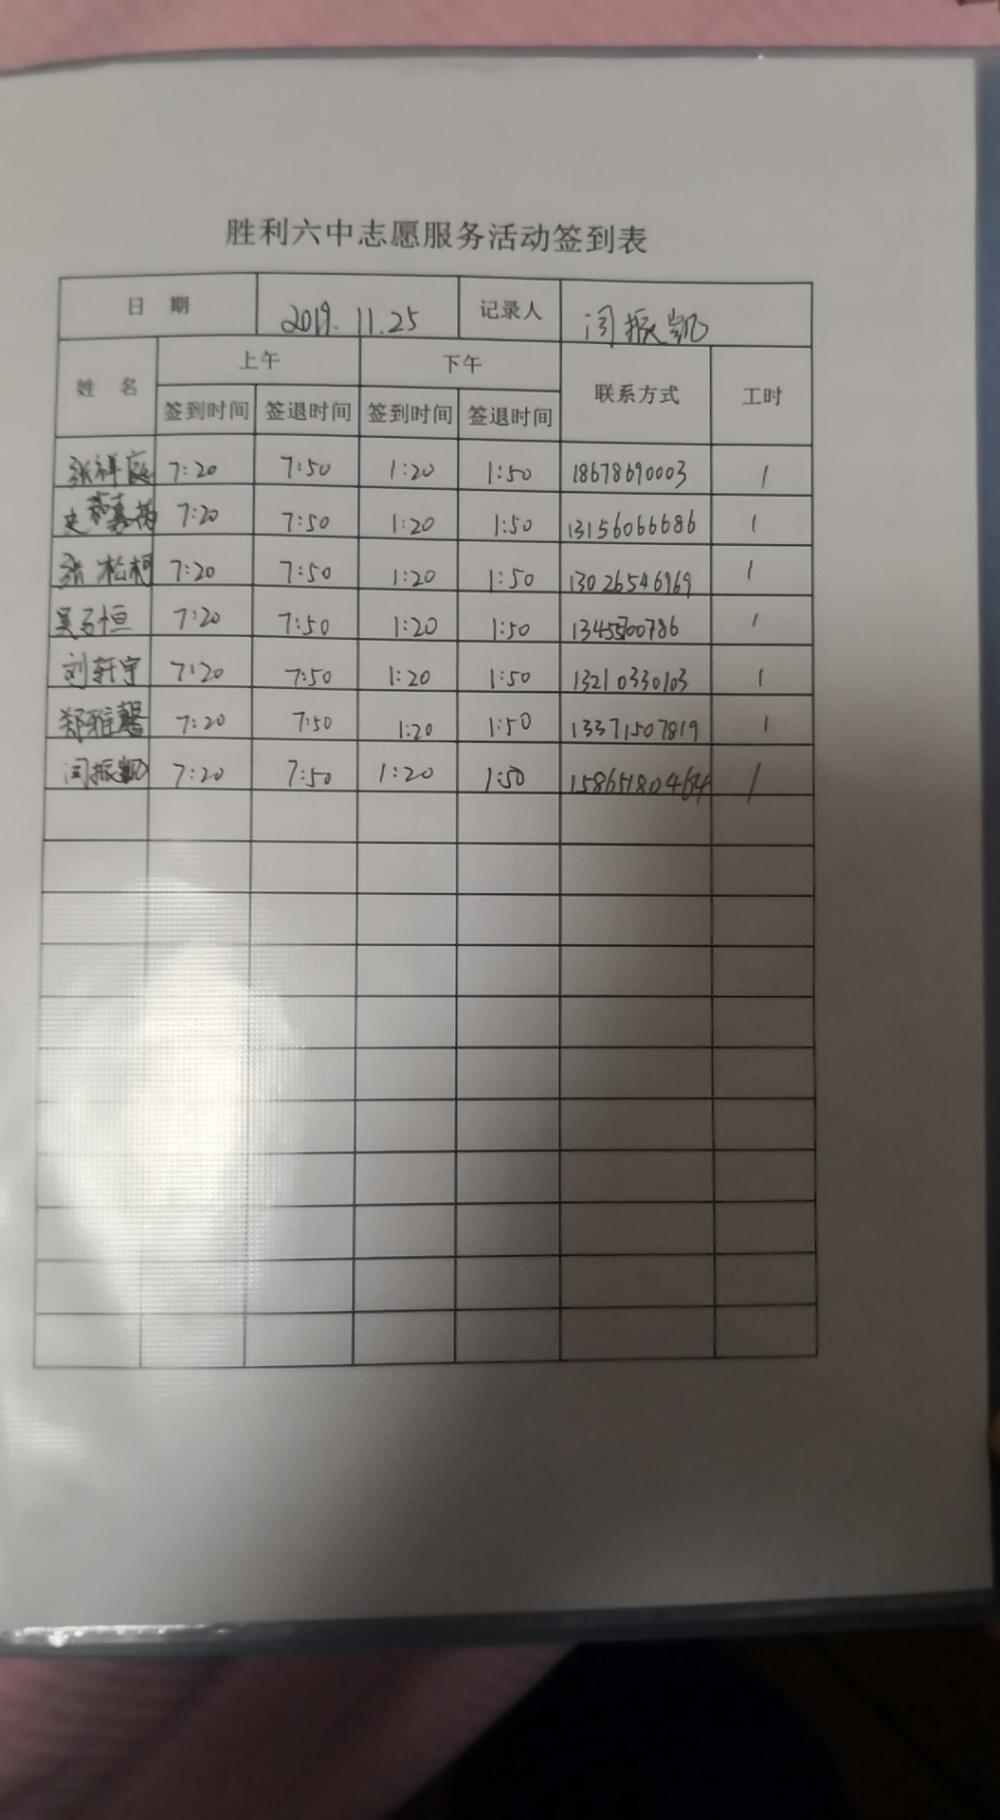 胜利六中志愿服务活动签到表
日 期 2019.11.25 记录人 闫振凯
姓 名 上午 下午 联系方式 工时
签到时间 签退时间 签到时间 签退时间
张祥庭 7:20 7:50 1:20 1:50 18678690003 1
史 7:20 7:50 1:20 1:50 13156066686 1
张松柯 7:20 7:50 1:20 1:50 13026546969 1
吴 恒 7:20 7:50 1:20 1:50 1
刘轩宇 7:20 7:50 1:20 1:50 13210330103 1
郑雅馨 7:20 7:50 1:20 1:50 13371507819 1
闫振凯 7:20 7:50 1:20 1:50 1